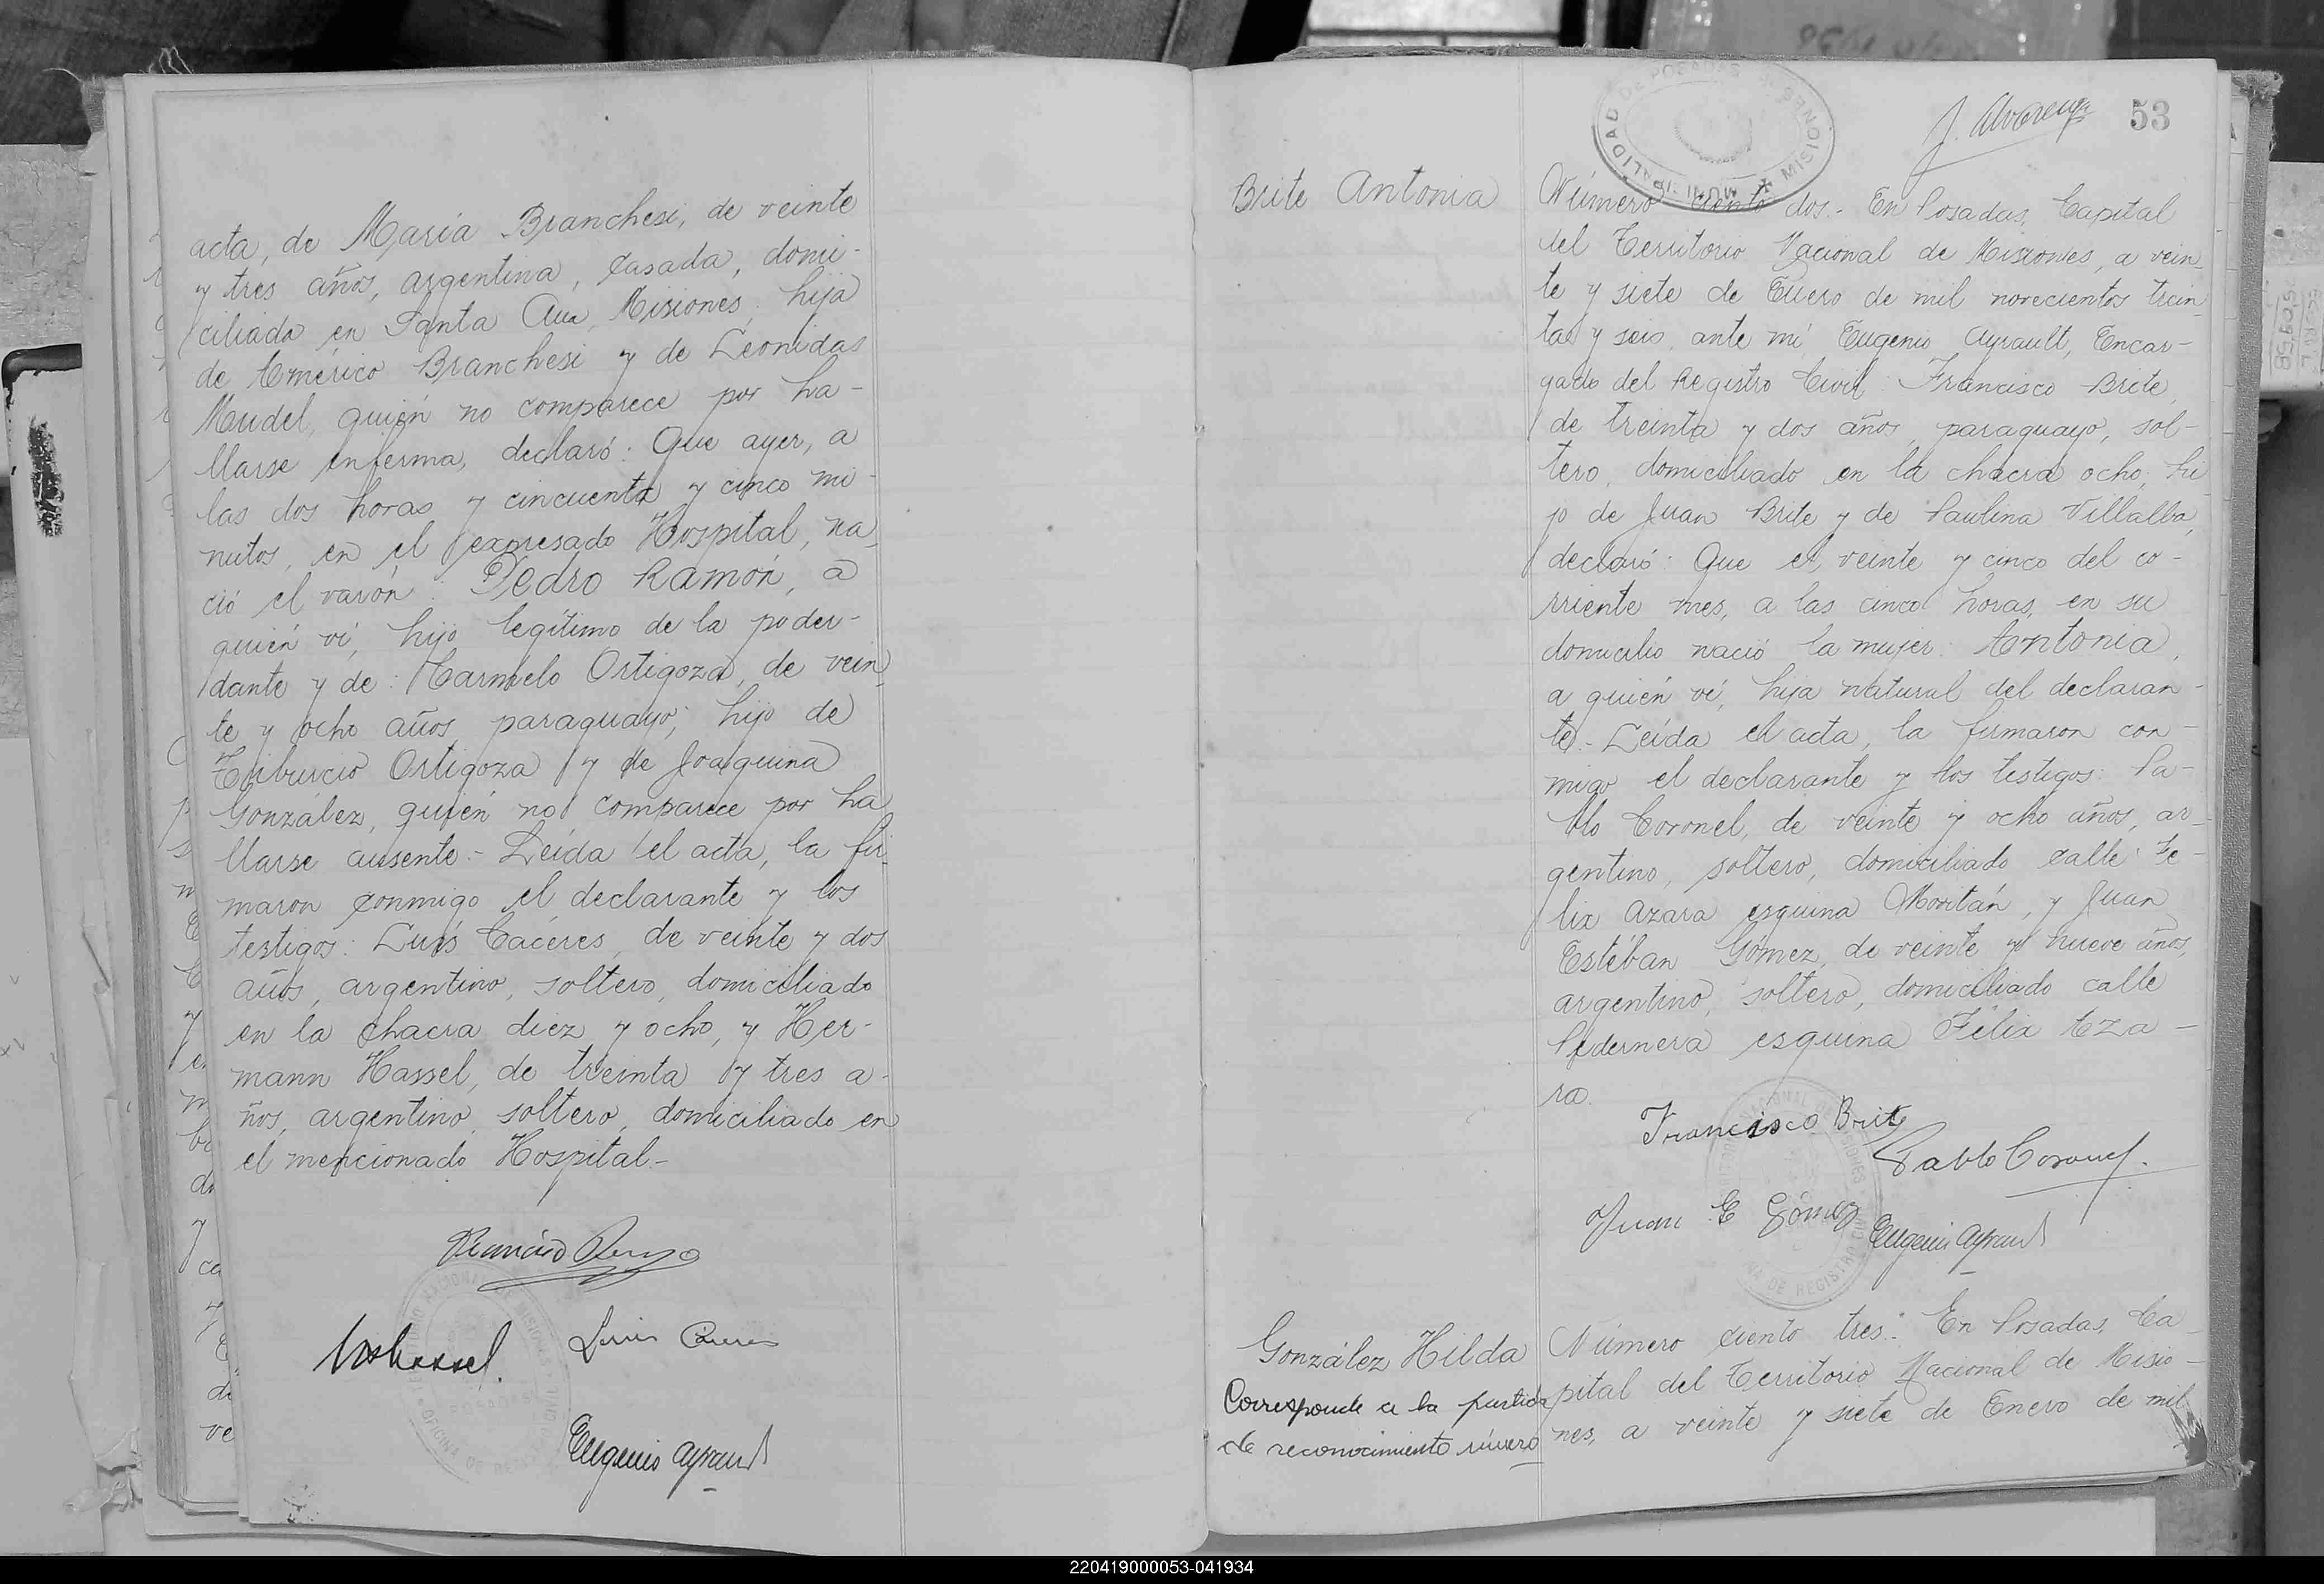 acta, de María Branchesi, de veinte
y tres años, argentina, casada, domi-
ciliada en Santa Ana, Misiones, hija
de Américo Branchesi y de Leonidas
Mudel, quién no comparece por ha-
llarse enferma, declaró: Que ayer, a
las dos horas y cincuenta y cinco mi-
nutos, en el expresado Hospital, na-
ció el varón: Pedro Ramón, a
quién ví, hijo legítimo de la poder-
dante y de: Carmelo Ortigoza, de vein-
te y ocho años, paraguayo, hijo de
Tiburcio Ortigoza y de Joaquina
González, quién no comparece por ha-
llarse ausente.- Leída el acta, la fir-
maron conmigo el declarante y los
testigos: Luís Caceres, de veinte y dos
años, argentino, soltero, domiciliado
en la chacra diez y ocho, y Her-
mann Hassel, de treinta y tres a-
ños, argentino, soltero, domiciliado en
el mencionado Hospital.-
Luis Caceres
Eugenio Ayrault
J. Alvarenga
53
MUNICIPALIDAD DE POSADAS
MISIONES
Brite Antonia
Número ciento dos.- En Posadas, Capital
del Territorio Nacional de Misiones, a vein-
te y siete de Enero de mil novecientos trein-
ta y seis, ante mí, Eugenio Ayrault, Encar-
gado del Registro Civil: Francisco Brite,
de treinta y dos años, paraguayo, sol-
tero, domiciliado en la chacra ocho, hi-
jo de Juan Brite y de Paulina Villalba,
declaró: Que el veinte y cinco del co-
rriente mes, a las cinco horas, en su
domicilio nació la mujer: Antonia,
a quién ví, hija natural del declaran-
te.- Leída el acta, la firmaron con-
migo el declarante y los testigos: Pa-
blo Coronel, de veinte y ocho años, ar-
gentino, soltero, domiciliado calle Fe-
lix Azara esquina Moritán, y Juan
Estéban Gómez, de veinte y nueve años,
argentino, soltero, domiciliado calle
Pedernera esquina Félix Aza-
ra.
Francisco Brite
Pablo Coronel.
Juan E Gómez
Eugenio Ayrault
González Hilda
Corresponde a la partida
de reconocimiento número
Número ciento tres.- En Posadas, Ca-
pital del Territorio Nacional de Misio-
nes, a veinte y siete de Enero de mil
220419000053-041934